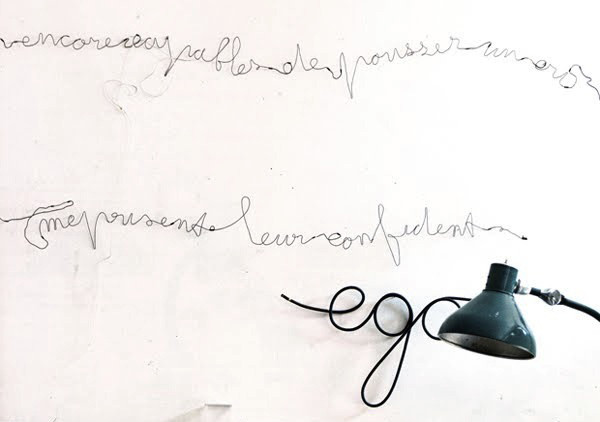 encore capables de pousser un
méprisent leur confident
ego